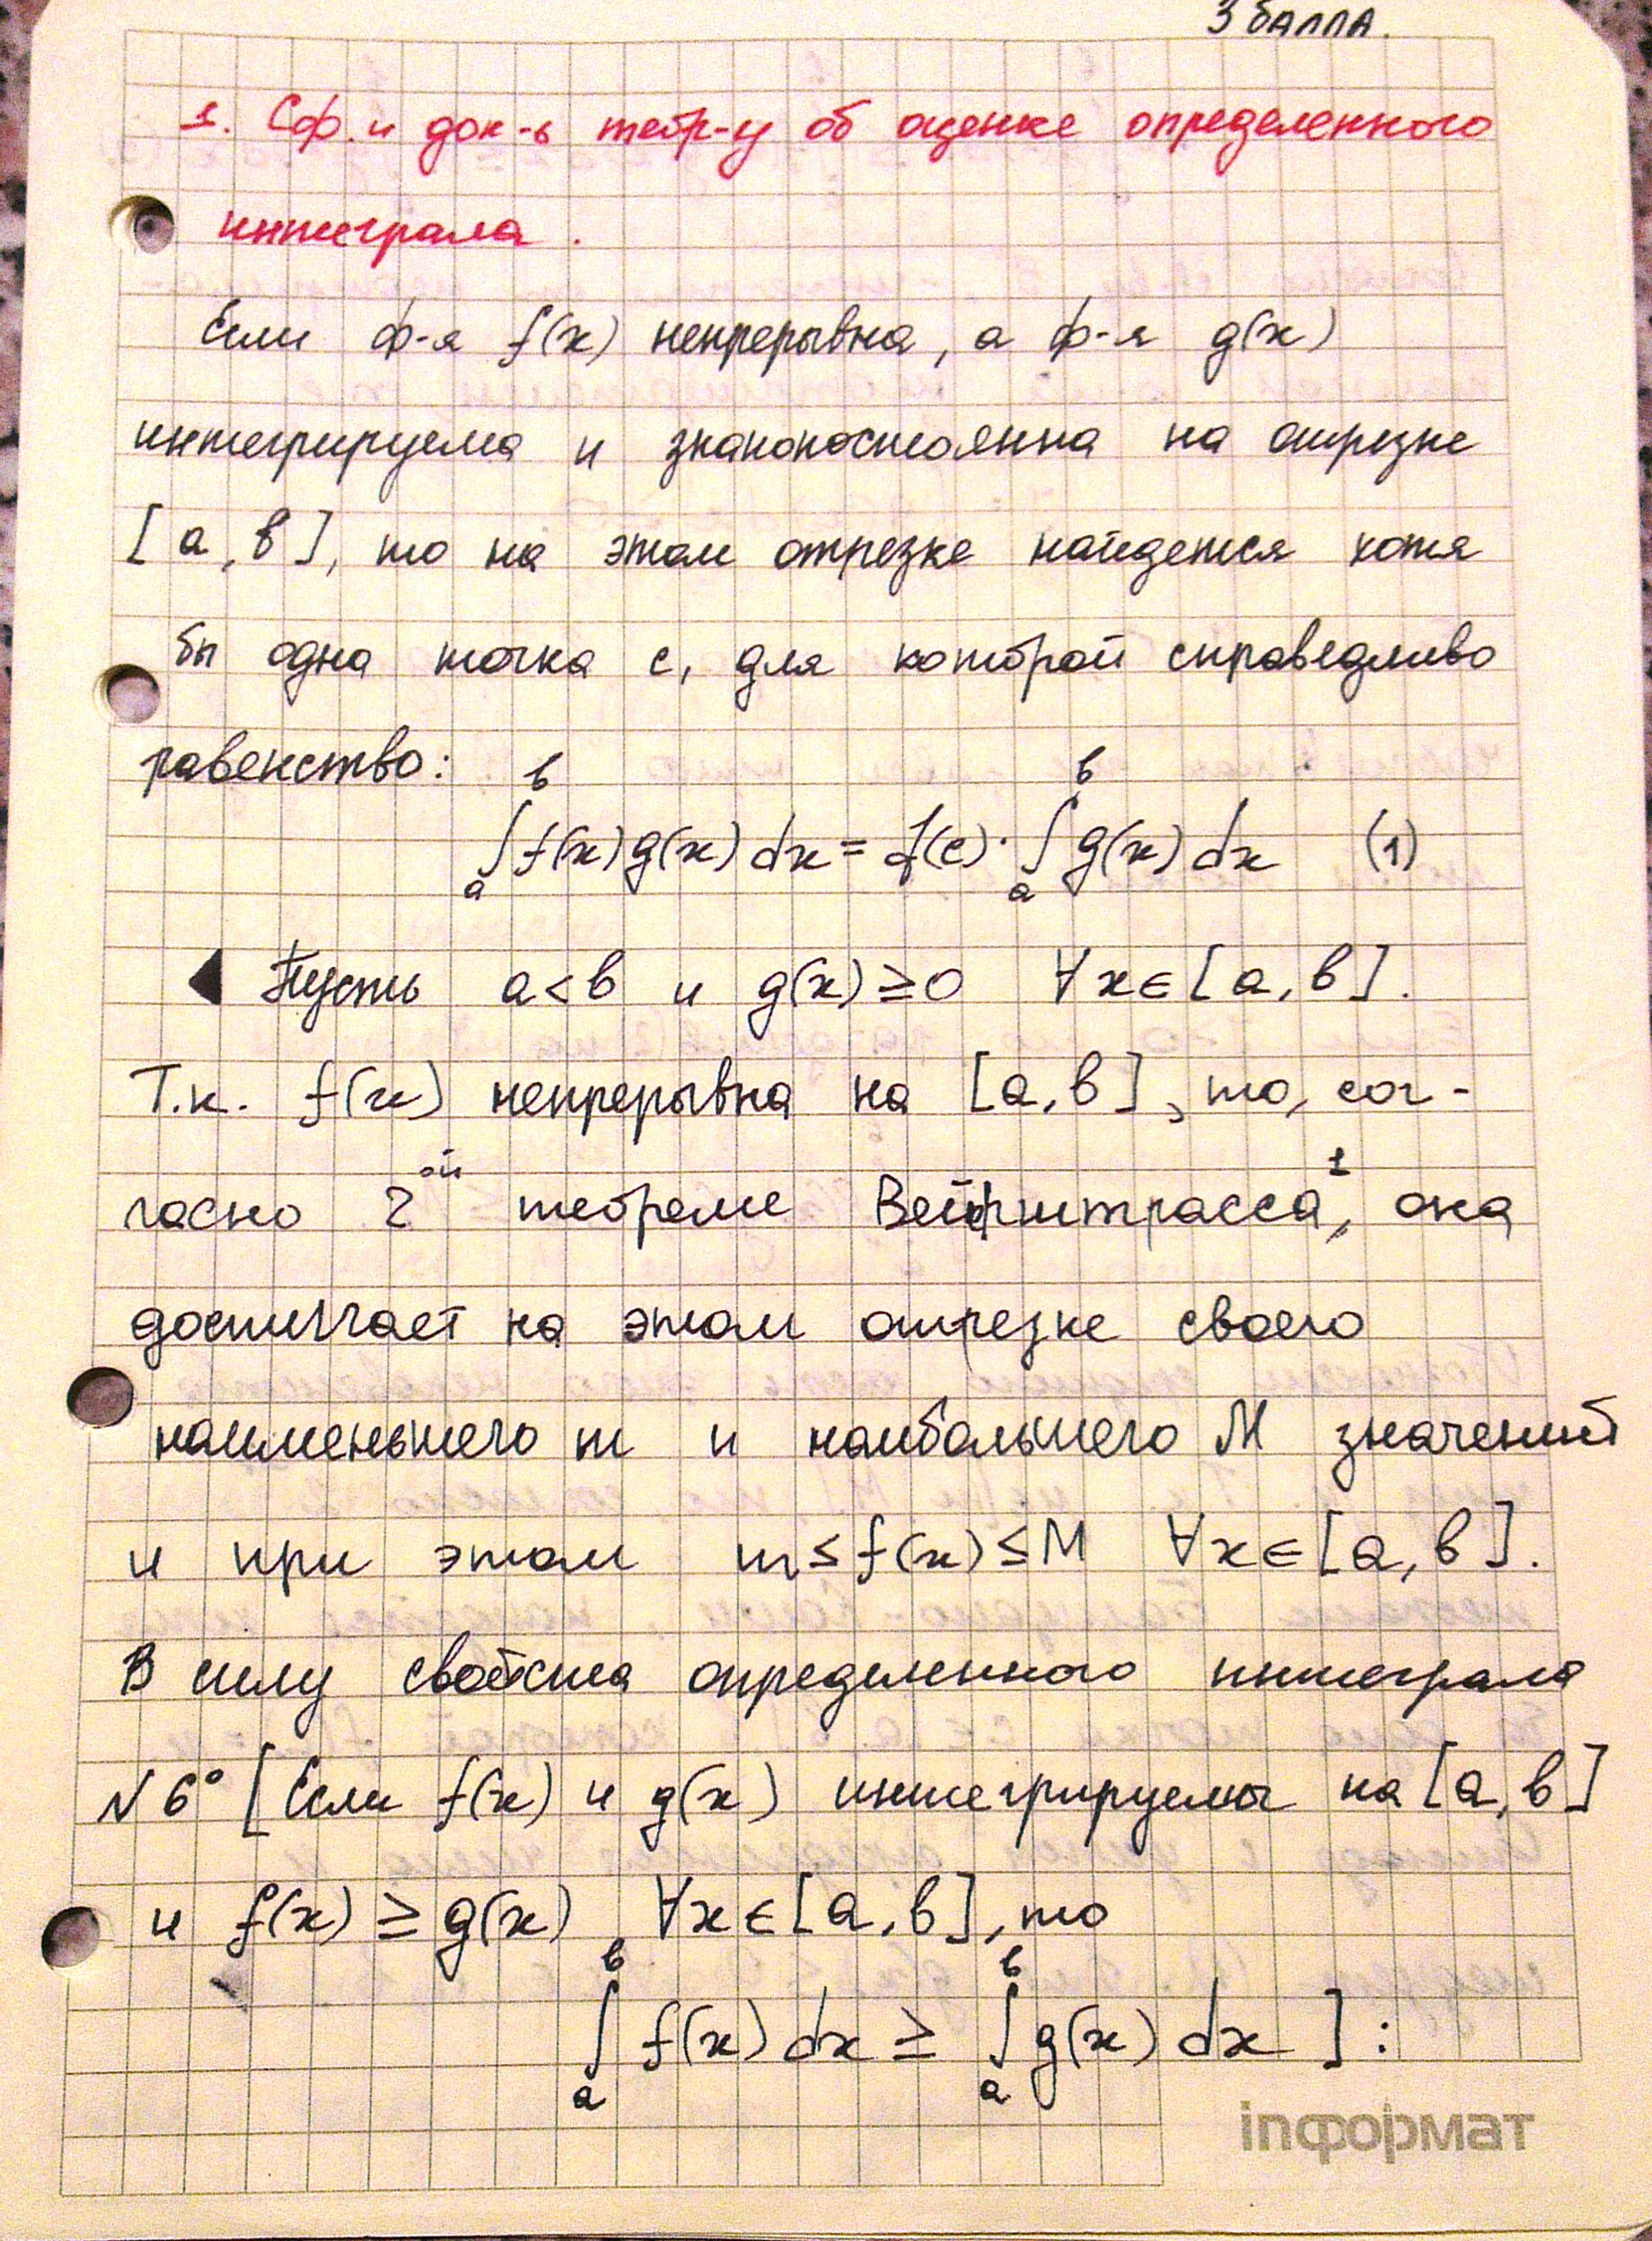 3 БАЛЛА.
1. Сф. и док-ь теор-у об оценке определенного
интеграла.
Если ф-я f(x) непрерывна, а ф-я g(x)
интегрируема и знакопостоянна на отрезке
[a, b], то на этом отрезке найдется хотя
бы одна точка c, для которой справедливо
равенство:
∫ₐᵇ f(x)g(x)dx = f(c)·∫ₐᵇ g(x)dx (1)
◀ Пусть a<b и g(x)≥0 ∀x∈[a, b].
Т.к. f(x) непрерывна на [a, b], то, сог-
ласно 2ой теореме Вейерштрасса¹, она
достигает на этом отрезке своего
наименьшего m и наибольшего M значений
и при этом m≤f(x)≤M ∀x∈[a, b].
В силу свойства определенного интеграла
№6° [Если f(x) и g(x) интегрируемы на [a, b]
и f(x)≥g(x) ∀x∈[a, b], то
∫ₐᵇ f(x)dx ≥ ∫ₐᵇ g(x)dx ]:
inформат